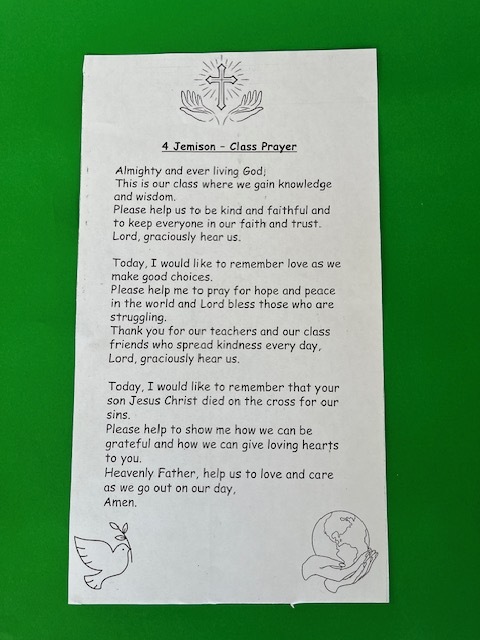 4 Jemison – Class Prayer
Almighty and ever living God;
This is our class where we gain knowledge
and wisdom.
Please help us to be kind and faithful and
to keep everyone in our faith and trust.
Lord, graciously hear us.
Today, I would like to remember love as we
make good choices.
Please help me to pray for hope and peace
in the world and Lord bless those who are
struggling.
Thank you for our teachers and our class
friends who spread kindness every day,
Lord, graciously hear us.
Today, I would like to remember that your
son Jesus Christ died on the cross for our
sins.
Please help to show me how we can be
grateful and how we can give loving hearts
to you.
Heavenly Father, help us to love and care
as we go out on our day,
Amen.